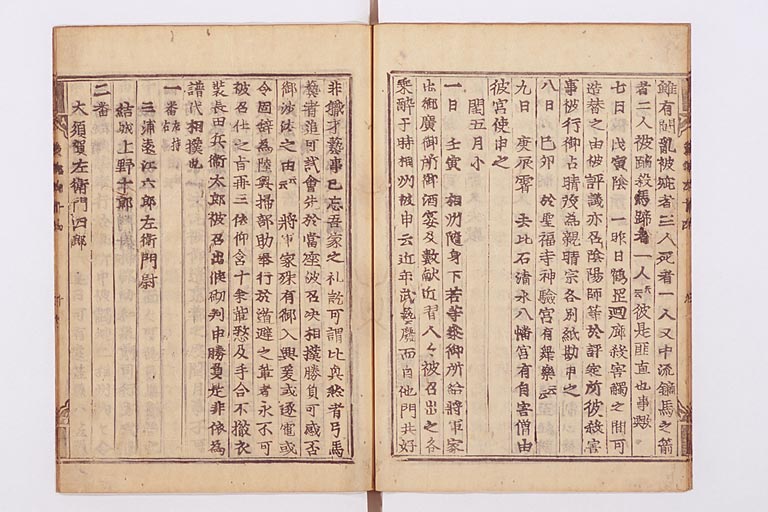 雖有闘乱被疵者三人死者一人又中流鏑馬之箭
者二人被踏殺馬蹄者一人云云彼是匪直也事歟
七日 戊寅陰 一昨日鶴岳廻廊殺害觸之間可
造替之由被評議亦召陰陽師等於評定所彼殺害
事被行御占晴茂為親晴宗各別紙勘申之
八日 己卯 於聖福寺神驗宮有舞樂云云
九日 庚辰霽 去比石清水八幡宮有自害僧由
彼宮使申之
閏五月小
一日 壬寅 相州随身下若等參御所給將軍家
出御廣御所御酒宴及数献近習人々被召出之各
乗酔于時相州被申云近年武藝廢而自他門共好
非職才藝事已忘吾家之礼訖可謂比興然者弓馬
藝者追可試會先於當座被召决相撲勝負可感否
御沙汰之由云云 將軍家殊有御入興爰或逐電或
令固辞為陸奥掃部助奉行於遁避之輩者永不可
被召仕之旨再三依仰含十余輩愁及手合不撤衣
裝長田兵衛太郎被召出候砌判申勝負是非依為
譜代相撲也
一番 左持 右
三浦遠江六郎左衛門尉
結城上野十郎
二番
大須賀左衛門四郎